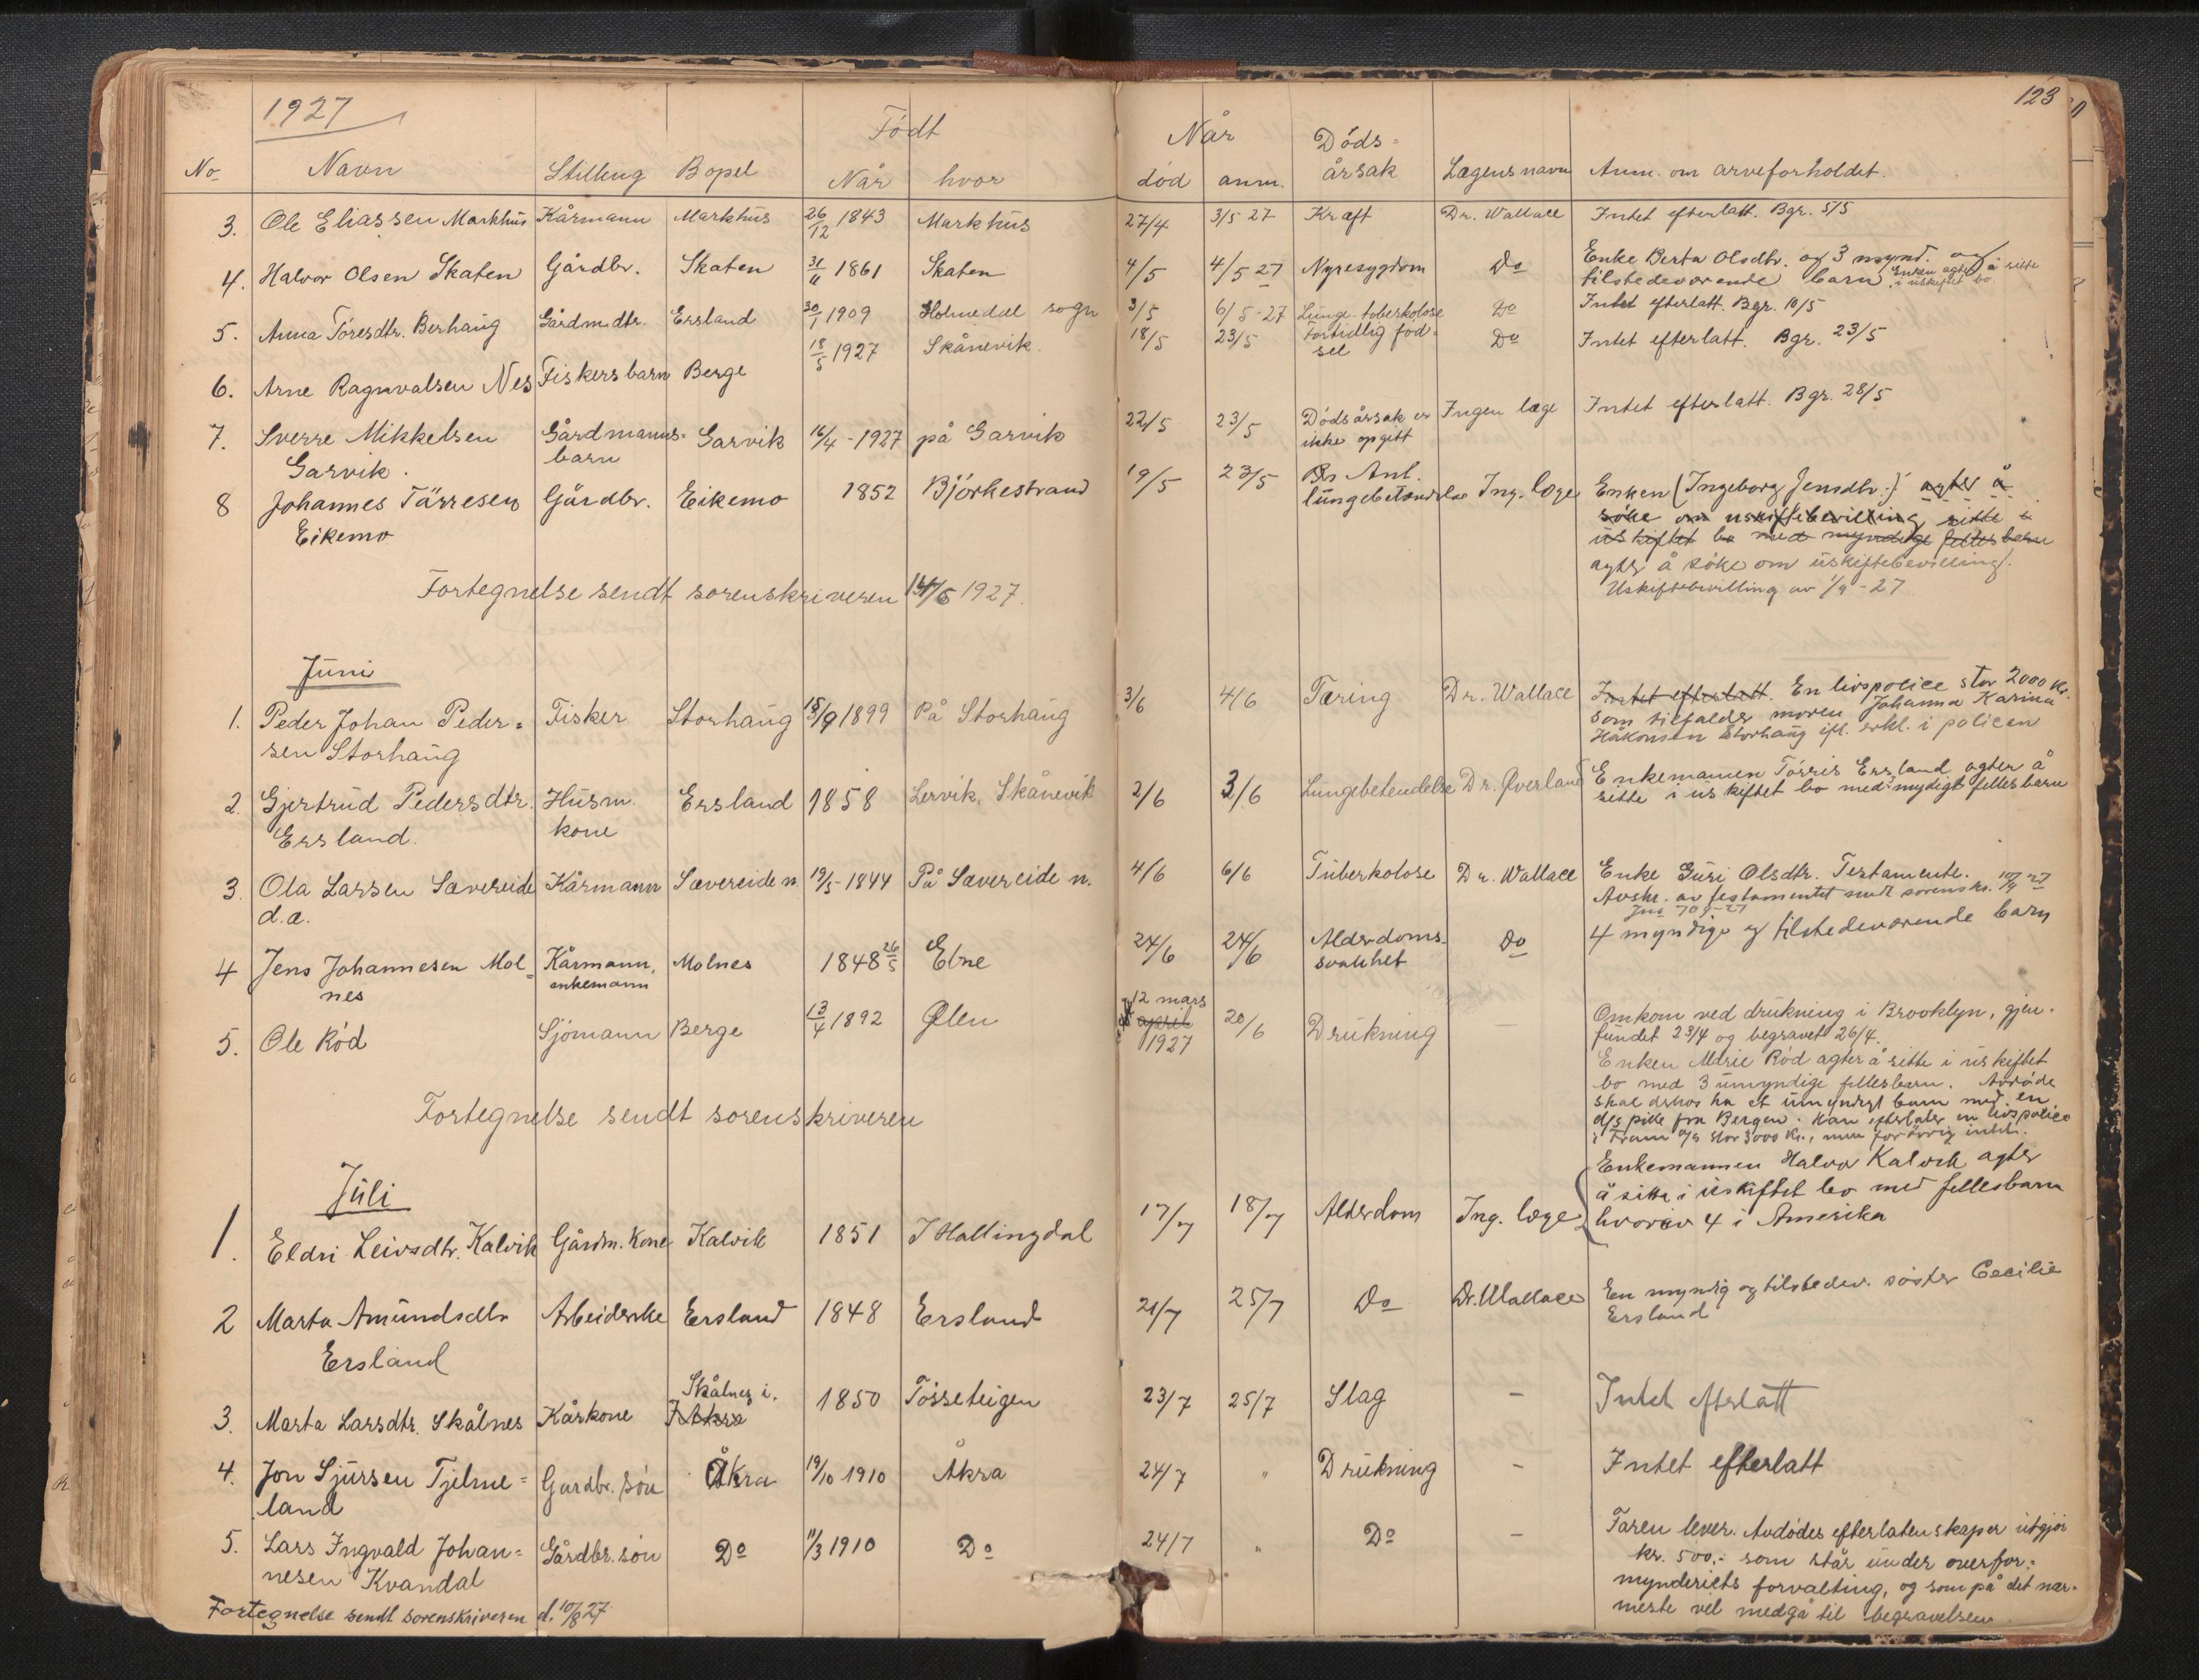 1927
123
Født
Når
Døds-
No Navn Stilling Bopel Når hvor død anm. årsak Lægens navn Anm. om arveforholdet.
3. Ole Eliassen Markhus Kårmann Markhus 26/12 1843 Markhus 27/4 3/5 27 Kræft Dr. Wallace Intet efterlatt. Bgr. 5/5
4. Halvor Olsen Skaten Gårdbr. Skaten 1861 Skaten 4/5 4/5 27 Nyresygdom Do Enke Berta Olsdtr. og 3 mynd. og
tilstedeværende barn. Enken agter å sitte
i uskiftet bo
5. Anna Tóresdtr. Berhaug Gårdm.dtr. Ersland 30/1 1909 Holmedal sogn 3/5 6/5-27 Lunge-tuberkolose Do Intet efterlatt. Bgr. 10/5
6. Arne Ragnvalsen Nes Fiskersbarn Berge 18/5 1927 Skånevik. 18/5 23/5 Fortidlig fød-
sel Do Intet efterlatt. Bgr. 23/5
7. Sverre Mikkelsen Gårdmanns- Garvik 16/4-1927 på Garvik 22/5 23/5 Dødsårsak er Ingen læge Intet efterlatt. Bgr. 28/5
Garvik. barn ikke opgitt
8 Johannes Tärresen Gårdbr. Eikemo 1852 Bjørkestrand 19/5 23/5 Ant. Ing. læge Enken (Ingeborg Jensdtr.) agter å
Eikemo lungebetændelse
søke om uskiftebevilling sitte i
uskiftet bo med myndige felles barn
agter å søke om uskiftebevilling.
Uskiftebevilling av 1/9-27
Fortegnelse sendt sorenskriveren 1927.
Juni
1. Peder Johan Peder- Fisker Storhaug 1899 På Storhaug 3/6 4/6 Tæring Dr. Wallace Intet efterlatt. En livspolice stor 2000 kr.
sen Storhaug som tilfalder moren Johanna Karina
Håkonsen Storhaug ifl. erkl. i policen
2. Gjertrud Pedersdtr. Husm. Ersland 1858 Lervik, Skånevik 2/6 3/6 Lungebetendelse Dr. Øverland Enkemannen Tørris Ersland agter å
Ersland. kone sitte i uskiftet bo med myndige fellesbarn
3. Ola Larsen Sævereide Kårmann Sævereide n. 19/5-1844 På Sævereide n. 4/6 6/6 Tuberkolose Dr. Wallace Enke Guri Olsdtr. Testamente.
d.æ. Avskr. av testamentet sendt sorenskr.
4 Jens Johannesen Mol- Kårmann, Molnes 1848 26/5 Etne 24/6 24/6 Alderdoms- Do 4 myndige og tilstedeværende barn
nes enkemann svakhet
5. Ole Rød Sjömann Berge 13/4 1892 Ølen 12 mars 20/6 Drukning — Omkom ved drukning i Brooklyn, gjen-
april fundet 23/4 og begravet 26/4.
1927 Enken Marie Rød agter å sitte i uskiftet
bo med 3 umyndige fellesbarn. Avdøde
skal desuten ha et umyndigt barn med en
pike fra Bergen. Han efterlater en livspolice
i Fram a/s stor 3000 kr., men forövrig intet.
Fortegnelse sendt sorenskriveren
Juli
1. Eldri Leivsdtr. Kalvik Gårdm. kone Kalvik 1851 I Hallingdal 17/7 18/7 Alderdom Ing. læge Enkemannen Halvor Kalvik agter
å sitte i uskiftet bo med fellesbarn
hvorav 4 i Amerika
2 Marta Amundsdtr Arbeiderske Ersland 1848 Ersland 21/7 25/7 Do Dr. Wallace En myndig og tilstedev. søster Cecilie
Ersland Ersland
3. Marta Larsdtr. Skålnes Kårkone Skålnes i. 1850 Tösseteigen 23/7 25/7 Slag — Intet efterlatt
Åkra
4. Jon Sjursen Tjelme- Gardbr. søn Åkra 19/10 1910 Åkra 24/7 " Drukning - Intet efterlatt
land
5. Lars Ingvald Johan- Gårdbr. søn Do 11/3 1910 Do 24/7 " Do — Faren lever. Avdödes efterlatenskaper utgjør
nesen Kvandal kr. 500,- som står under overfor-
mynderiets forvalting, og som på det nær-
meste vil medgå til begravelsen
Fortegnelse sendt sorenskriveren d. 10/8 27